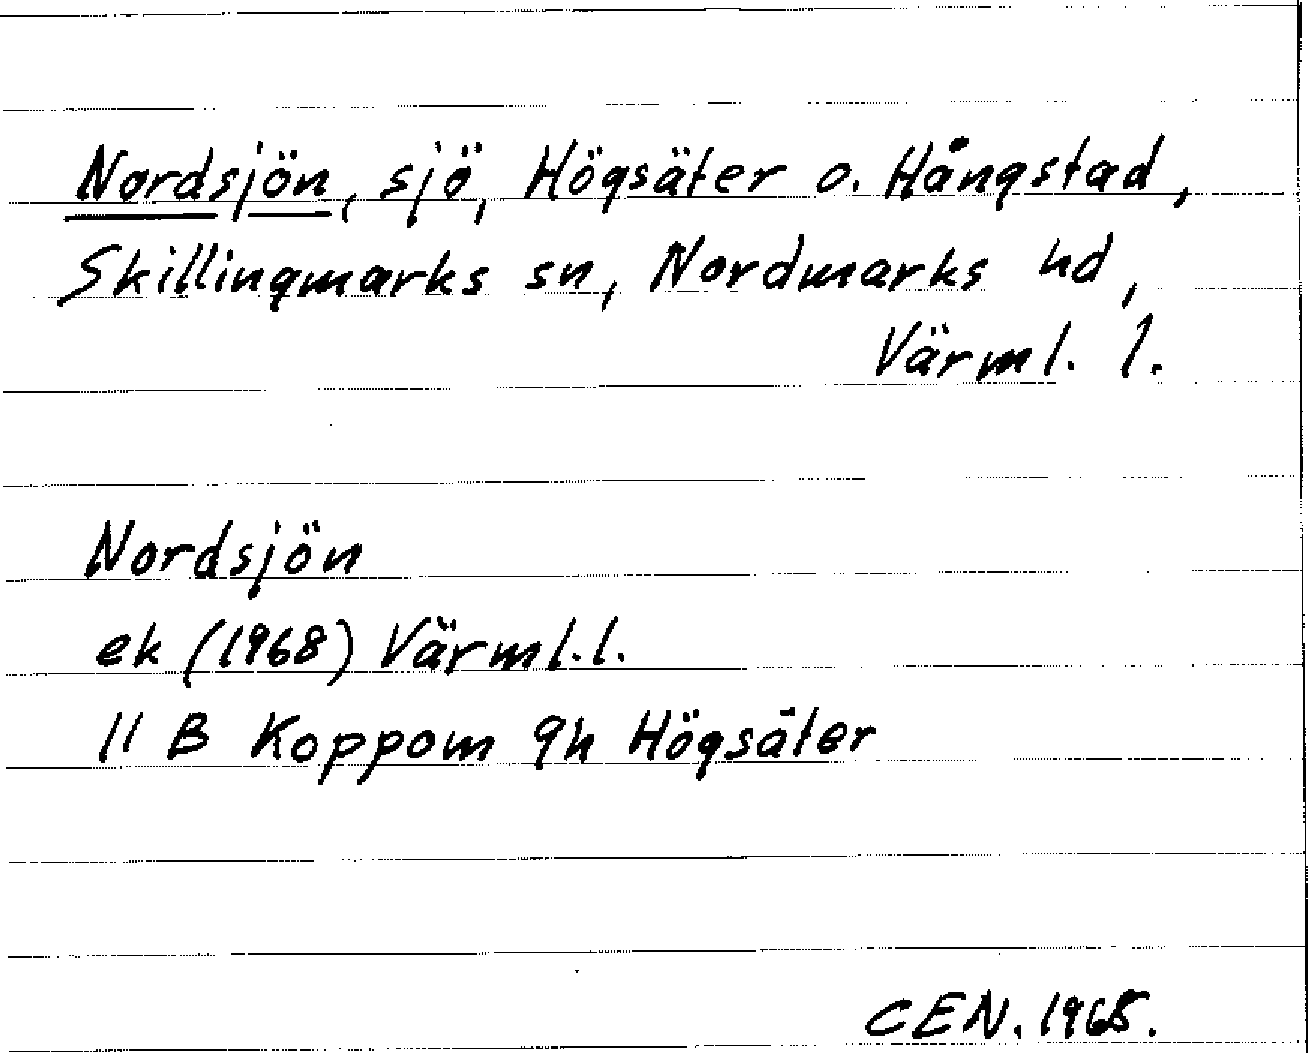 Nordsjön, sjö, Högsäter o. Hångstad,
Skillingmarks sn, Nordmarks hd,
Värml. l.
Nordsjön
ek (1968) Värml. l.
11 B Koppom 9h Högsäter
CEN. 1968.